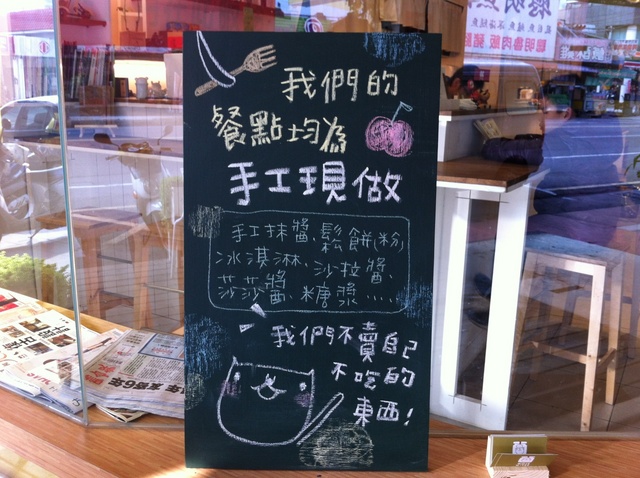 我們的
餐點均為
手工現做
手工抹醬、鬆餅粉,
冰淇淋、沙拉醬、
莎莎醬、糖漿....
我們不賣自己
不吃的
東西!